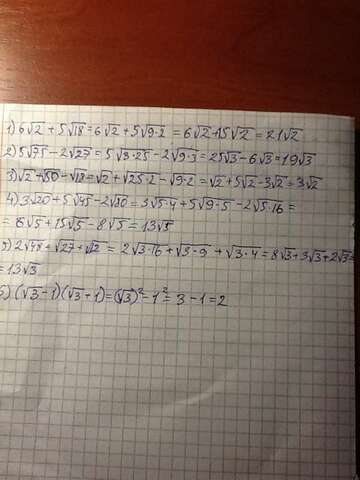 1) 6√2 + 5√18 = 6√2 + 5√9·2 = 6√2 + 15√2 = 21√2
2) 5√75 - 2√27 = 5√3·25 - 2√9·3 = 25√3 - 6√3 = 19√3
3) √2 + √50 - √18 = √2 + √25·2 - √9·2 = √2 + 5√2 - 3√2 = 3√2
4) 3√20 + 5√45 - 2√80 = 3√5·4 + 5√9·5 - 2√5·16 =
= 6√5 + 15√5 - 8√5 = 13√5
5) 2√48 + √27 + √12 = 2√3·16 + √3·9 + √3·4 = 8√3 + 3√3 + 2√3 =
= 13√3
6) (√3 - 1)(√3 + 1) = (√3)² - 1² = 3 - 1 = 2